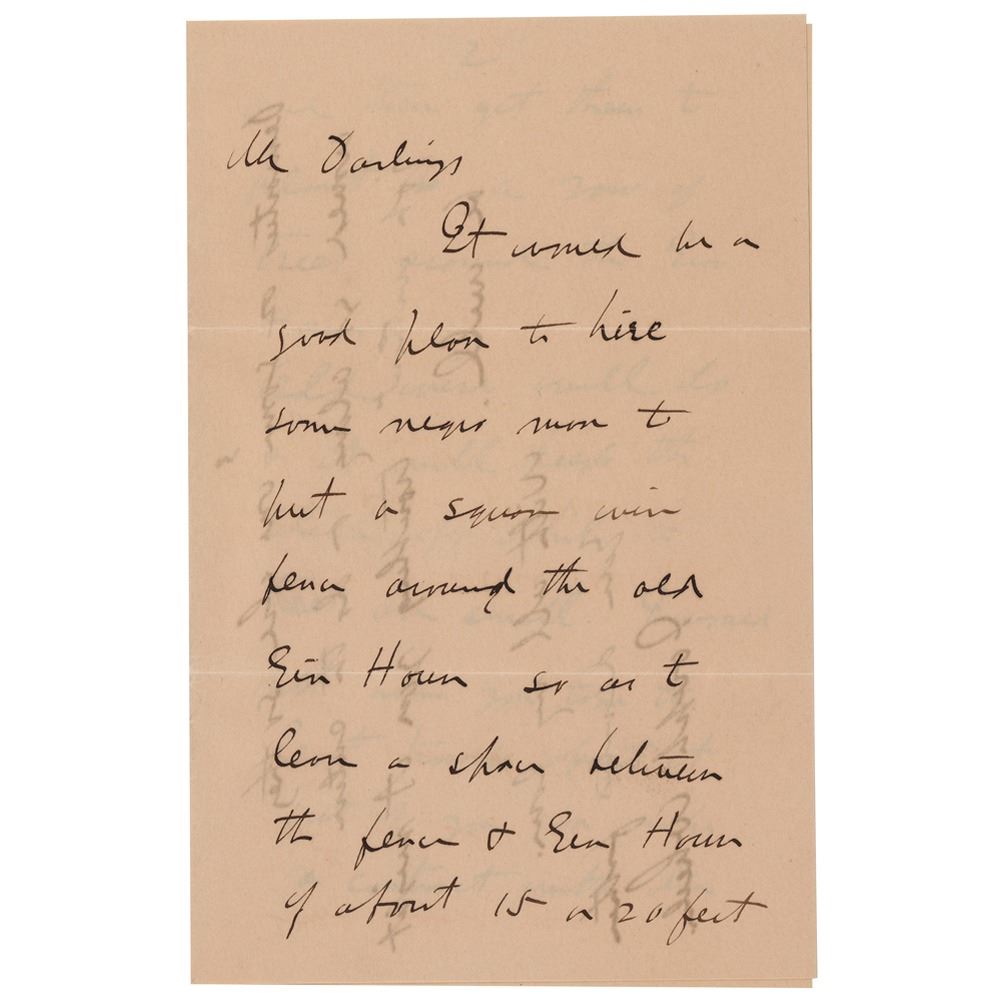 Mr Darlings
It would be a
good plan to hire
some negro man to
put a square wire
fence around the old
Gin House so as to
leave a space between
the fence & Gin House
of about 15 or 20 feet